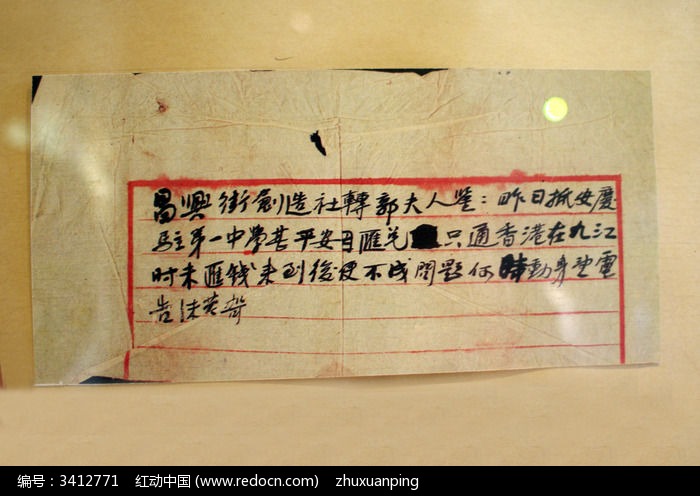 昌興街創造社轉郭夫人鉴：昨日抵安慶
駐第一中學甚平安目匯兑只通香港在九江
时未匯钱来到後便不成問題何時動身望電
告沫若
编号：3412771 红动中国 (www.redocn.com) zhuxuanping